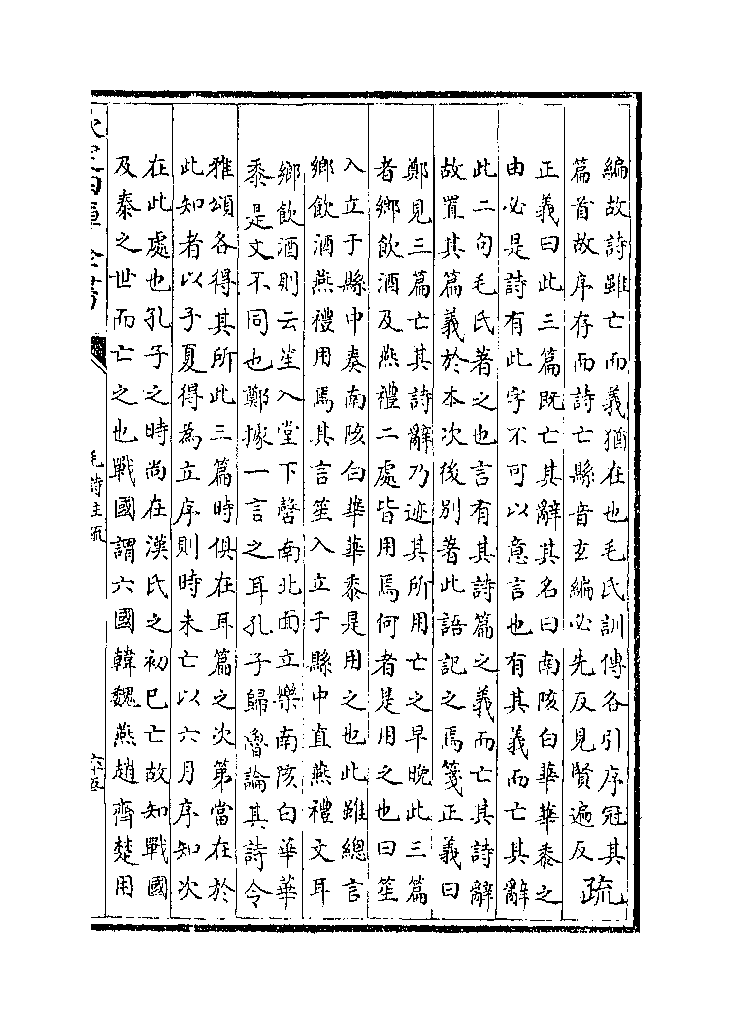 編故詩雖亡而義猶在也毛氏訓傳各引序冠其
篇首故序存而詩亡縣音玄編必先反見賢遍反
疏
正義曰此三篇既亡其辭其名曰南陔白華華黍之
由必是詩有此字不可以意言也有其義而亡其辭
此二句毛氏著之也言有其詩篇之義而亡其詩辭
故置其篇義於本次後別著此語記之焉箋正義曰
鄭見三篇亡其詩辭乃迹其所用亡之早晚此三篇
者鄉飲酒及燕禮二處皆用焉何者是用之也曰笙
入立于縣中奏南陔白華華黍是用之也此雖總言
鄉飲酒燕禮用焉其言笙入立于縣中直燕禮文耳
鄉飲酒則云笙入堂下磬南北面立樂南陔白華華
黍是文不同也鄭據一言之耳孔子歸魯論其詩令
雅頌各得其所此三篇時俱在耳篇之次第當在於
此知者以子夏得為立序則時未亡以六月序知次
在此處也孔子之時尚在漢氏之初已亡故知戰國
及秦之世而亡之也戰國謂六國韓魏燕趙齊楚用
欽定四庫全書
毛詩注疏